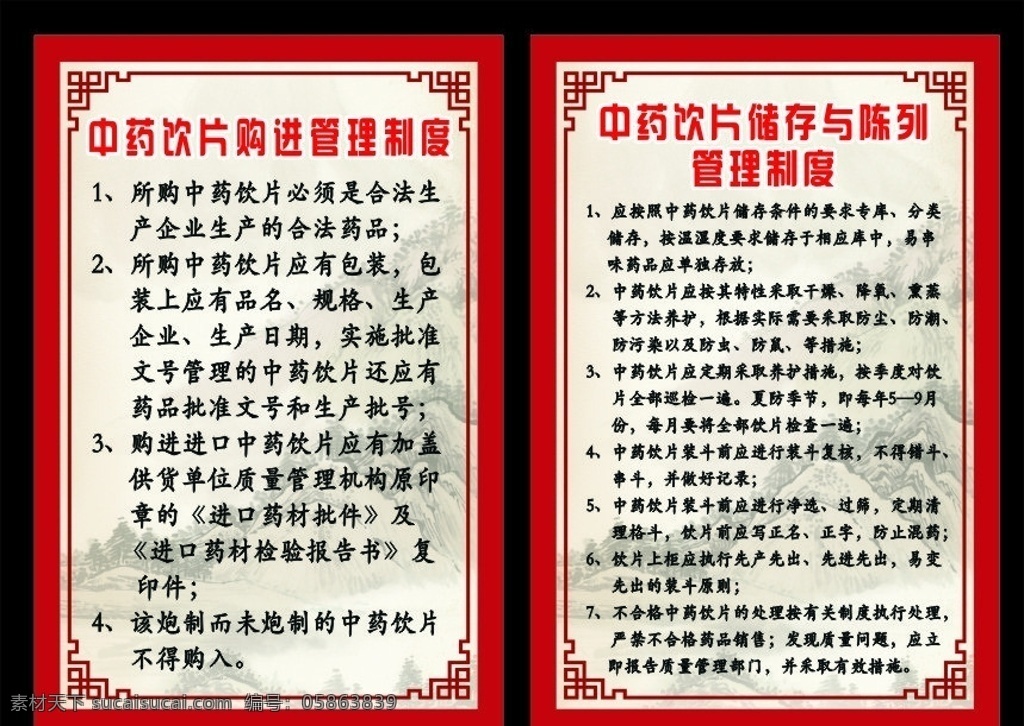 中药饮片购进管理制度
1、所购中药饮片必须是合法生
产企业生产的合法药品；
2、所购中药饮片应有包装，包
装上应有品名、规格、生产
企业、生产日期，实施批准
文号管理的中药饮片还应有
药品批准文号和生产批号；
3、购进进口中药饮片应有加盖
供货单位质量管理机构原印
章的《进口药材批件》及
《进口药材检验报告书》复
印件；
4、该炮制而未炮制的中药饮片
不得购入。
中药饮片储存与陈列
管理制度
1、应按照中药饮片储存条件的要求专库、分类
储存，按温湿度要求储存于相应库中，易串
味药品应单独存放；
2、中药饮片应按其特性采取干燥、降氧、熏蒸
等方法养护，根据实际需要采取防尘、防潮、
防污染以及防虫、防鼠、等措施；
3、中药饮片应定期采取养护措施，按季度对饮
片全部巡检一遍。夏防季节，即每年5—9月
份，每月要将全部饮片检查一遍；
4、中药饮片装斗前应进行装斗复核，不得错斗、
串斗，并做好记录；
5、中药饮片装斗前应进行净选、过筛，定期清
理格斗，饮片前应写正名、正字，防止混药；
6、饮片上柜应执行先产先出、先进先出，易变
先出的装斗原则；
7、不合格中药饮片的处理按有关制度执行处理，
严禁不合格药品销售；发现质量问题，应立
即报告质量管理部门，并采取有效措施。
素材天下 sucaisucai.com 编号：05863839